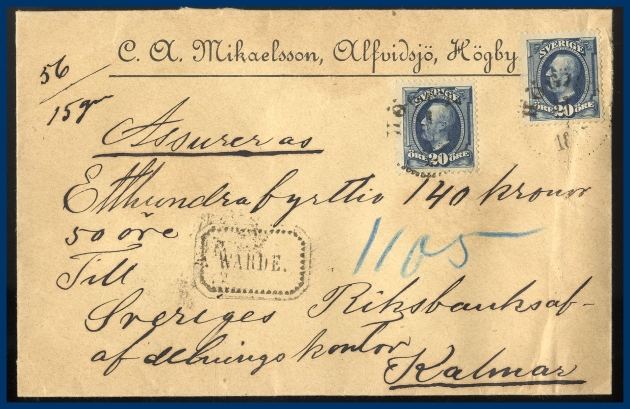 C. A. Mikaelsson, Alfvidsjö, Högby
56
15 gr
SVERIGE
ÖRE 20 ÖRE
SVERIGE
ÖRE 20 ÖRE
Assureras
Etthundrafyrttio 140 kronor
50 öre
1105
WARDE.
Till
Sveriges Riksbanksaf-
afdelningskontor
Kalmar